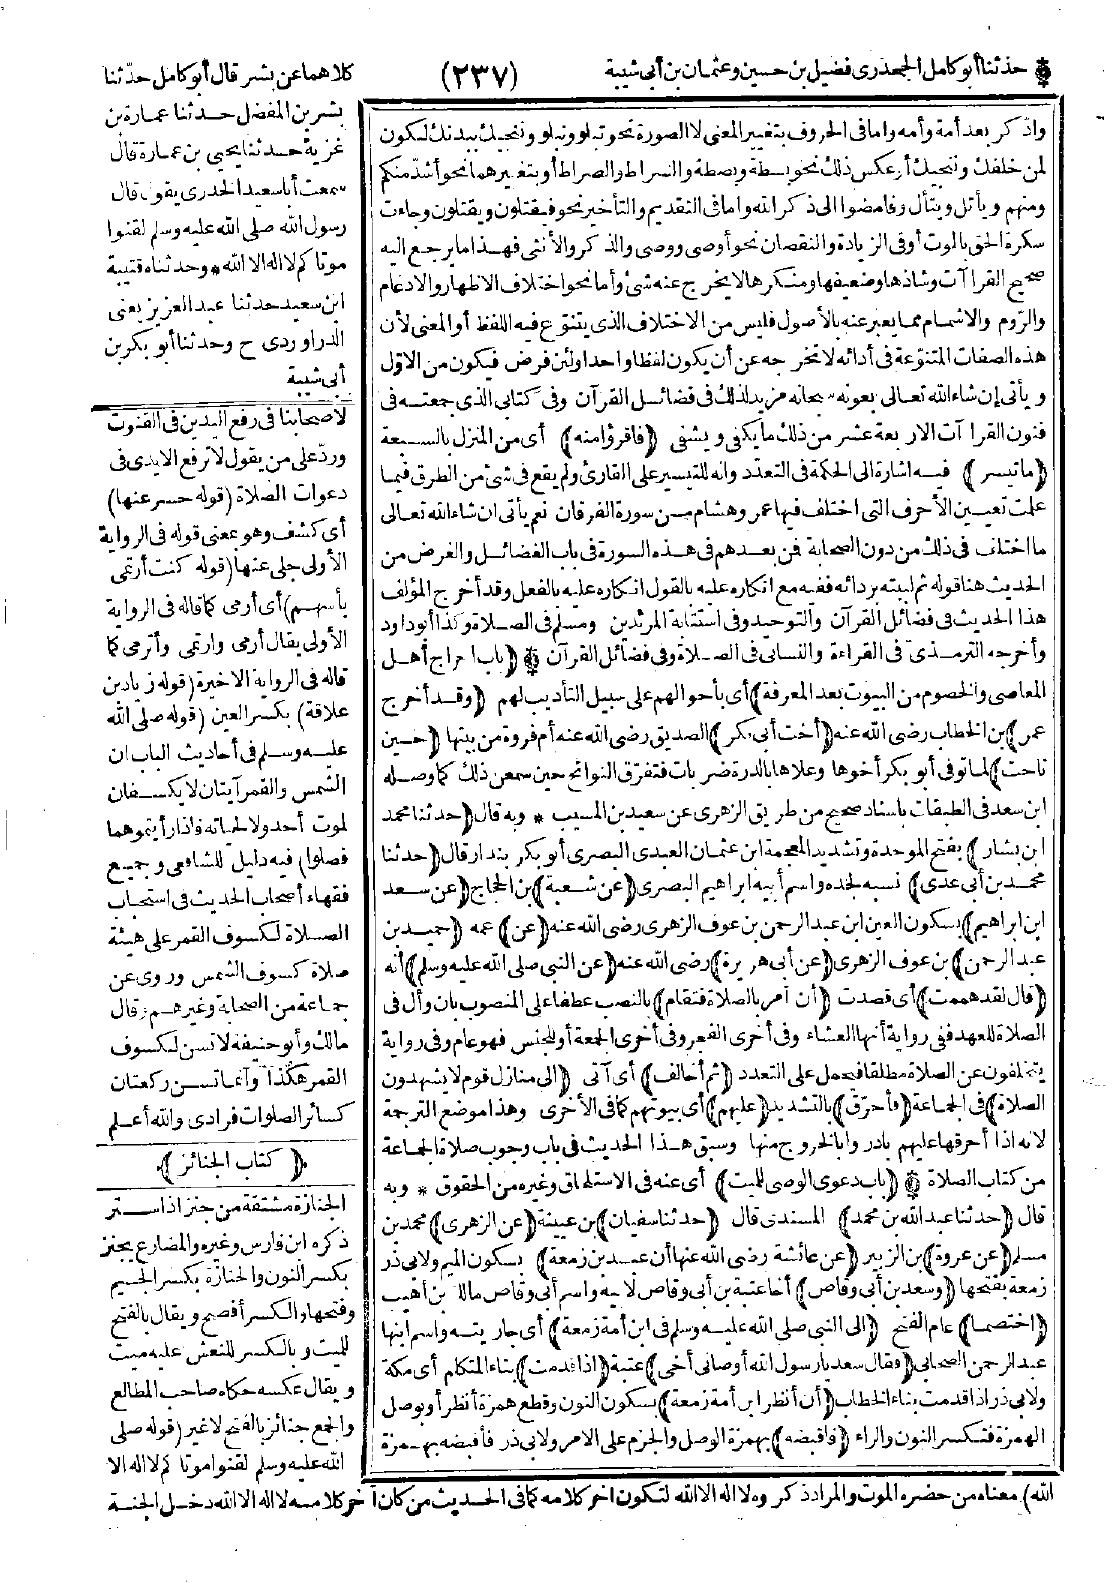 حدثنا أبو كامل الجحدرى فضيل بن حسين وعثمان بن أبى شيبة
(٢٣٧)
كلاهما عن بشر قال أبو كامل حدثنا
بشر بن المفضل حدثنا عمارة بن
غزية حدثنا يحيى بن عمارة قال
سمعت أبا سعيد الخدرى يقول قال
رسول الله صلى الله عليه وسلم لقنوا
موتاكم لا اله الا الله * وحدثناه قتيبة
ابن سعيد حدثنا عبد العزيز يعنى
الدراوردى ح وحدثنا أبو بكر بن
أبى شيبة
لأصحابنا فى رفع اليدين فى القنوت
ورد على من يقول لا ترفع الايدى فى
دعوات الصلاة (قوله حسر عنها)
أى كشف وهو بمعنى قوله فى الرواية
الأولى جلى عنها (قوله كنت أرتمى
بأسهم) أى أرمى كما قاله فى الرواية
الأولى يقال أرمى وارتمى وأترمى كما
قاله فى الرواية الاخيرة (قوله زياد بن
علاقة) بكسر العين (قوله صلى الله
عليه وسلم فى أحاديث الباب ان
الشمس والقمر آيتان لا يكسفان
لموت أحد ولا لحياته فاذا رأيتموهما
فصلوا) فيه دليل للشافعى وجميع
فقهاء أصحاب الحديث فى استحباب
الصلاة لكسوف القمر على هيئة
صلاة كسوف الشمس وروى عن
جماعة من الصحابة وغيرهم وقال
مالك وأبو حنيفة لا تسن لكسوف
القمر هكذا وانما تسن ركعتان
كسائر الصلوات فرادى والله أعلم
﴿ كتاب الجنائز ﴾
الجنازة مشتقة من جنز اذا ستر
ذكره ابن فارس وغيره والمضارع يجنز
بكسر النون والجنازة بكسر الجيم
وفتحها والكسر أفصح ويقال بالفتح
للميت وبالكسر للنعش عليه ميت
ويقال عكسه حكاه صاحب المطالع
والجمع جنائز بالفتح لا غير (قوله صلى
الله عليه وسلم لقنوا موتاكم لا اله الا
واذكر بعد أمة وأمه واما فى الحروف بتغيير المعنى لا الصورة نحو تبلو وتتلو وننجيك ببدنك لتكون
لمن خلفك وننجيك أو عكس ذلك نحو بسطة وبصطة والسراط والصراط أو بتغيرهما نحو أشد منكم
ومنهم ويأتل ويتأل وفامضوا الى ذكر الله واما فى التقديم والتأخير نحو فيقتلون ويقتلون وجاءت
سكرة الحق بالموت أو فى الزيادة والنقصان نحو أوصى ووصى والذكر والأنثى فهذا ما يرجع اليه
صحيح القراآت وشاذها وضعيفها ومنكرها لا يخرج عنه شئ وأما نحو اختلاف الاظهار والادغام
والروم والاشمام مما يعبر عنه بالأصول فليس من الاختلاف الذى يتنوع فيه اللفظ أو المعنى لأن
هذه الصفات المتنوعة فى أدائه لا تخرجه عن أن يكون لفظا واحدا ولئن فرض فيكون من الاول
ويأتى إن شاء الله تعالى بعونه سبحانه مزيد لذلك فى فضائل القرآن وفى كتابى الذى جمعته فى
فنون القراآت الاربعة عشر من ذلك ما يكفى ويشفى ﴿فاقرؤا منه﴾ أى من المنزل بالسبعة
﴿ما تيسر﴾ فيه اشارة الى الحكمة فى التعدد وانه للتيسير على القارئ ولم يقع فى شئ من الطرق فيما
علمت تعيين الأحرف التى اختلف فيها عمر وهشام من سورة الفرقان نعم يأتى ان شاء الله تعالى
ما اختلف فى ذلك من دون الصحابة فمن بعدهم فى هذه السورة فى باب الفضائل والغرض من
الحديث هنا قوله ثم لببته بردائه ففيه مع انكاره عليه بالقول انكاره عليه بالفعل وقد أخرج المؤلف
هذا الحديث فى فضائل القرآن والتوحيد وفى استتابة المرتدين ومسلم فى الصلاة وكذا أبو داود
وأخرجه الترمذى فى القراءة والنسائى فى الصلاة وفى فضائل القرآن ﴿باب اخراج أهل
المعاصى والخصوم من البيوت بعد المعرفة﴾ أى بأحوالهم على سبيل التأديب لهم ﴿وقد أخرج
عمر﴾ بن الخطاب رضى الله عنه ﴿أخت أبى بكر﴾ الصديق رضى الله عنه أم فروة من بيتها ﴿حين
ناحت﴾ لما توفى أبو بكر أخوها وعلاها بالدرة ضربات فتفرق النوائح حين سمعن ذلك كما وصله
ابن سعد فى الطبقات باسناد صحيح من طريق الزهرى عن سعيد بن المسيب * وبه قال ﴿حدثنا محمد
ابن بشار﴾ بفتح الموحدة وتشديد المعجمة ابن عثمان العبدى البصرى أبو بكر بندار قال ﴿حدثنا
محمد بن أبى عدى﴾ نسبه لجده واسم أبيه ابراهيم البصرى ﴿عن شعبة﴾ بن الحجاج ﴿عن سعد
ابن ابراهيم﴾ بسكون العين ابن عبد الرحمن بن عوف الزهرى رضى الله عنه ﴿عن﴾ عمه ﴿حميد بن
عبد الرحمن﴾ بن عوف الزهرى ﴿عن أبى هريرة﴾ رضى الله عنه ﴿عن النبى صلى الله عليه وسلم﴾ أنه
﴿قال لقد هممت﴾ أى قصدت ﴿أن آمر بالصلاة فتقام﴾ بالنصب عطفا على المنصوب بان وأل فى
الصلاة للعهد ففى رواية أنها العشاء وفى أخرى الفجر وفى أخرى الجمعة أو للجنس فهو عام وفى رواية
يتخلفون عن الصلاة مطلقا فيحمل على التعدد ﴿ثم أخالف﴾ أى آتى ﴿الى منازل قوم لا يشهدون
الصلاة﴾ فى الجماعة ﴿فأحرق﴾ بالتشديد ﴿عليهم﴾ أى بيوتهم كما فى الأخرى وهذا موضع الترجمة
لانه اذا أحرقها عليهم بادروا بالخروج منها وسبق هذا الحديث فى باب وجوب صلاة الجماعة
من كتاب الصلاة ﴿باب دعوى الوصى للميت﴾ أى عنه فى الاستلحاق وغيره من الحقوق * وبه
قال ﴿حدثنا عبد الله بن محمد﴾ المسندى قال ﴿حدثنا سفيان﴾ بن عيينة ﴿عن الزهرى﴾ محمد بن
مسلم ﴿عن عروة﴾ بن الزبير ﴿عن عائشة رضى الله عنها أن عبد بن زمعة﴾ بسكون الميم ولابى ذر
زمعة بفتحها ﴿وسعد بن أبى وقاص﴾ أخا عتبة بن أبى وقاص لابيه واسم أبى وقاص مالك بن أهيب
﴿اختصما﴾ عام الفتح ﴿الى النبى صلى الله عليه وسلم فى ابن أمة زمعة﴾ أى جاريته واسم ابنها
عبد الرحمن الصحابى ﴿فقال سعد يا رسول الله أوصانى أخى﴾ عتبة ﴿اذا قدمت﴾ بتاء المتكلم أى مكة
ولابى ذر اذا قدمت بتاء الخطاب ﴿أن أنظر ابن أمة زمعة﴾ بسكون النون وقطع همزة أنظر أو بوصل
الهمزة فتكسر النون والراء ﴿فاقبضه﴾ بهمزة الوصل والجزم على الامر ولابى ذر فأقبضه بهمزة
الله) معناه من حضره الموت والمراد ذكروه لا اله الا الله لتكون آخر كلامه كما فى الحديث من كان آخر كلامه لا اله الا الله دخل الجنة